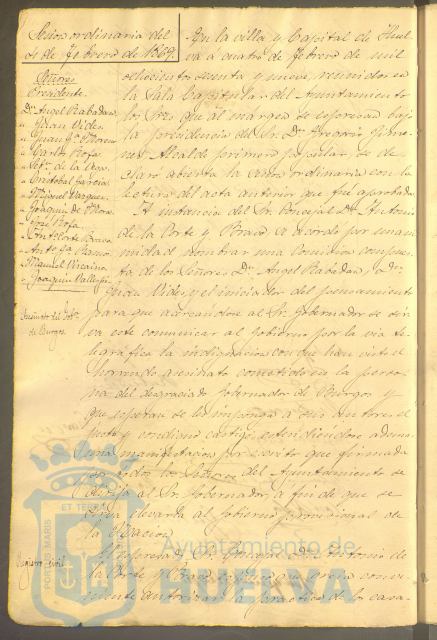 Sesion ordinaria del
4 de Febrero de 1869.
Señores
Presidente
Dn. Angel Rabadan
" Juan Vides
" Juan Gª Moreno
" Carlos Rofa
" Sebn. de la Cruz
" Cristobal Garcia
" Miguel Vazquez
" Joaquin de Mora
" José Rofa
" Antº Corte Bravo
" Antº Gª Ramos
" Manuel Vizcaino
" Joaquin Vallejo
Asesinato del Gobr.
de Burgos
Registro Civil
En la villa y Capital de Huel
va á cuatro de Febrero de mil
ochocientos sesenta y nueve, reunidos en
la Sala Capitular del Ayuntamiento
los Sres. que al margen se espresan bajo
la presidencia del Sr. Dn. Gregorio Jime-
nez Alcalde primero popular, se de-
claró abierta la sesion ordinaria con la
lectura del acta anterior que fué aprobada.
A instancia del Sr. Concejal Dn. Antonio
de la Corte y Bravo se acordó por unani
midad nombrar una Comision compues
ta de los Señores Dn. Angel Rabadan, Dn.
Juan Vides y el iniciador del pensamiento
para que acercandose al Sr. Gobernador se sir
va este comunicar al Gobierno por la via te-
legrafica la indignacion con que han visto el
horrendo asesinato cometido en la perso-
na del desgraciado Gobernador de Burgos y
que esperan se les imponga á sus autores el
justo y condigno castigo, estendiéndose ademas
una manifestacion por escrito que firmada
por todos los Señores del Ayuntamiento se
dirija al Sr. Gobernador, á fin de que se
sirva elevarla al Gobierno provisional de
la Nacion.
El espresado Sr. Concejal Dn. Antonio de
la Corte y Bravo espuso que creia conve-
niente autorizar la practica de los casa-
PORTUS MARIS ET TERRAE
Ayuntamiento de
HUELVA